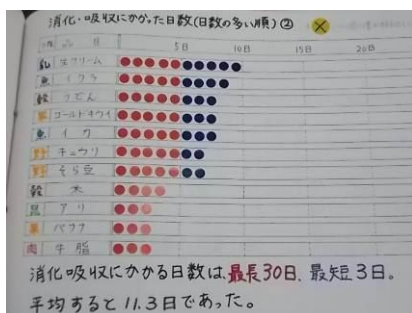 消化・吸収にかかった日数(日数の多い順)②
品目
5日 10日 15日 20日
乳 生クリーム
魚 イクラ
穀 うどん
果 ゴールドキウイ
魚 イカ
野 キュウリ
野 そら豆
穀 米
昆 アリ
果 バナナ
肉 牛脂
消化吸収にかかる日数は、最長30日、最短3日。
平均すると11.3日であった。